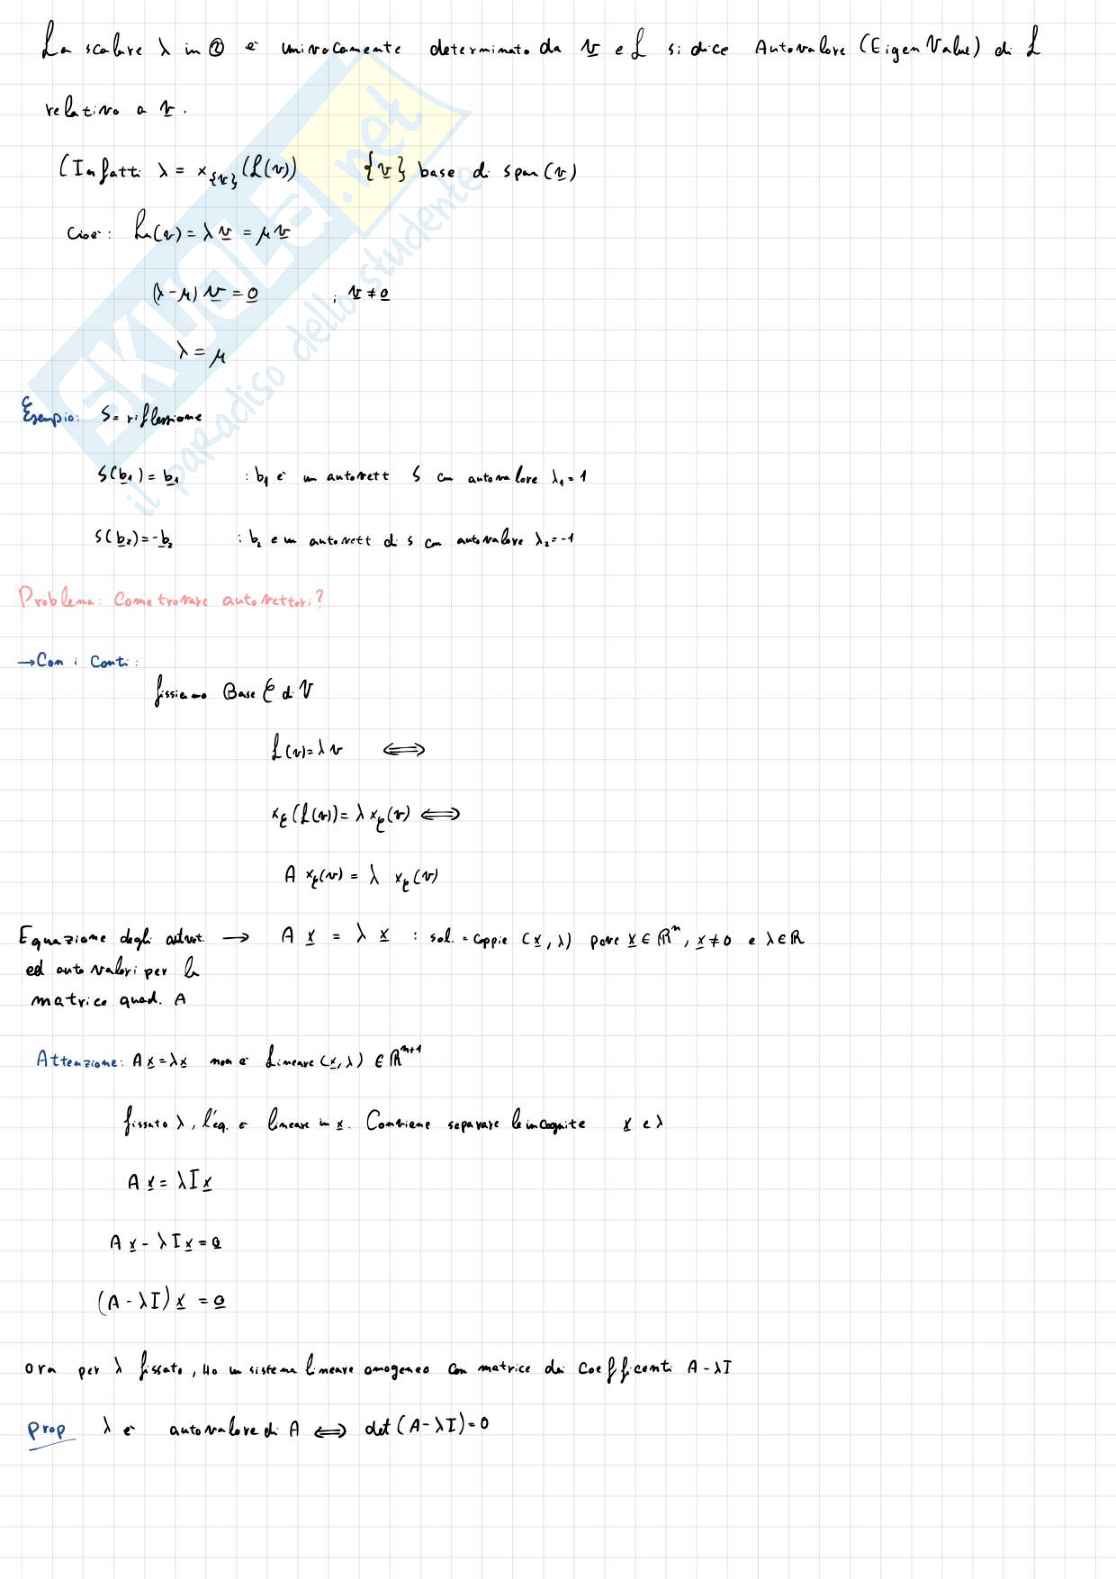 La scalare λ in ② e' univocamente determinato da v e L si dice Autovalore (Eigen Value) di L
relativo a v.
(Infatti λ = x{v}(L(v)) {v} base di span(v)
Cioe': L(v) = λv = μv
(λ-μ)v = 0 ; v ≠ 0
λ = μ
Esempio: S = riflessione
S(b₁) = b₁ : b₁ e' un autovett S con autovalore λ₁ = 1
S(b₂) = -b₂ : b₂ e un autovett di S con autovalore λ₂ = -1
Problema: Come trovare autovettori?
→ Con i Conti:
fissiamo Base E di V
L(v) = λv ⟺
x_E(L(v)) = λ x_E(v) ⟺
A x_E(v) = λ x_E(v)
Equazione degli autvet. → A x = λ x : sol. = coppie (x, λ) pore x ∈ ℝⁿ, x ≠ 0 e λ ∈ ℝ
ed autovalori per la
matrice quad. A
Attenzione: Ax = λx non e' Lineare (x, λ) ∈ ℝⁿ⁺¹
fissato λ, l'eq. e lineare in x. Conviene separare le incognite x e λ
A x = λI x
A x - λI x = 0
(A - λI) x = 0
ora per λ fissato, Ho un sistema lineare omogeneo con matrice dei Coefficenti A - λI
Prop λ e' autovalore di A ⟺ det (A - λI) = 0
SKUOLA.net
il paradiso dello studente